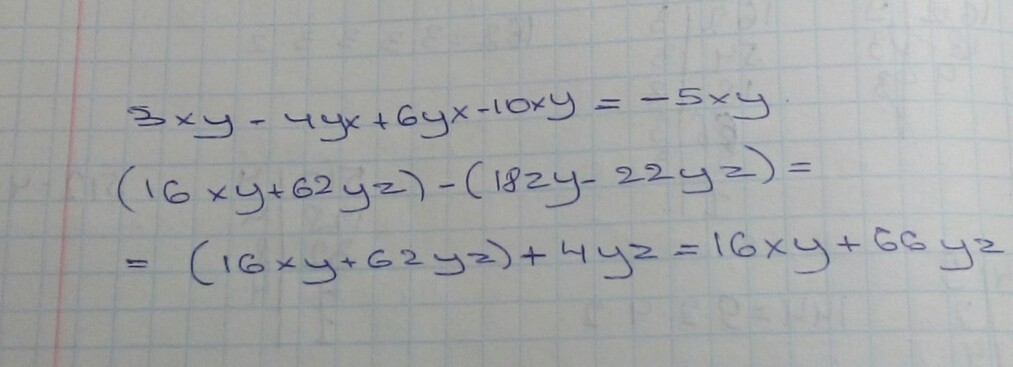 3xy - 4yx + 6yx - 10xy = -5xy
(16xy + 62yz) - (18zy - 22yz) =
= (16xy + 62yz) + 4yz = 16xy + 66yz